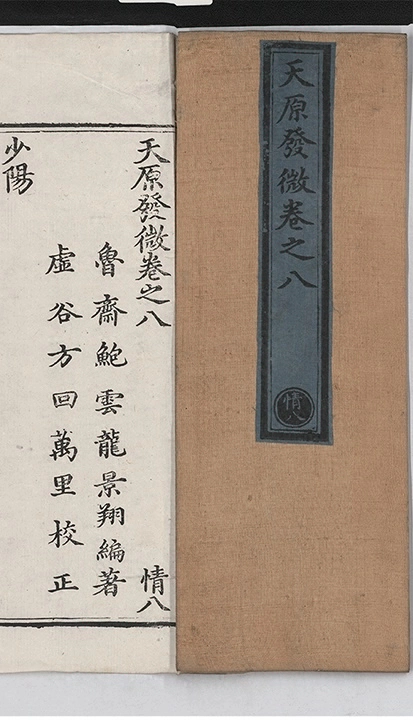 天原發微卷之八
情八
天原發微卷之八 情八
魯齋鮑雲龍景翔編著
虛谷方回萬里校正
少陽